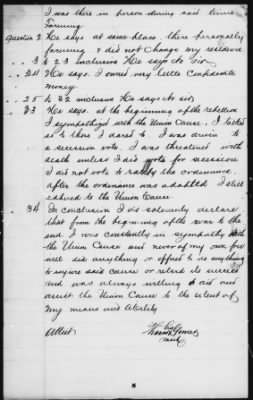 I was there in person during said time
Farming
Question 2 He says at same place there personally
farming & did not change my residence
.. 3 to 23 inclusive He says No sir
.. 24 He says I owned very little Confederate
money
.. 25 to 32 inclusive He says No sir
33 He says at the beginning of the rebellion
I sympathized with the Union Cause. I talked
it to those I dared to I was driven to
a secession vote. I was threatened with
death unless I did vote for secession
I did not vote to ratify the ordinance.
after the ordinance was adopted I still
adhered to the Union Cause.
34 In conclusion I do solemnly declare
that from the beginning of the war to the
end I was constantly in sympathy with
the Union Cause and never of my own free
will did anything or offered to do anything
to injure said cause or retard its success
and was always willing to aid and
assist the Union Cause to the extent of
my means and Ability
Attest
his
mark